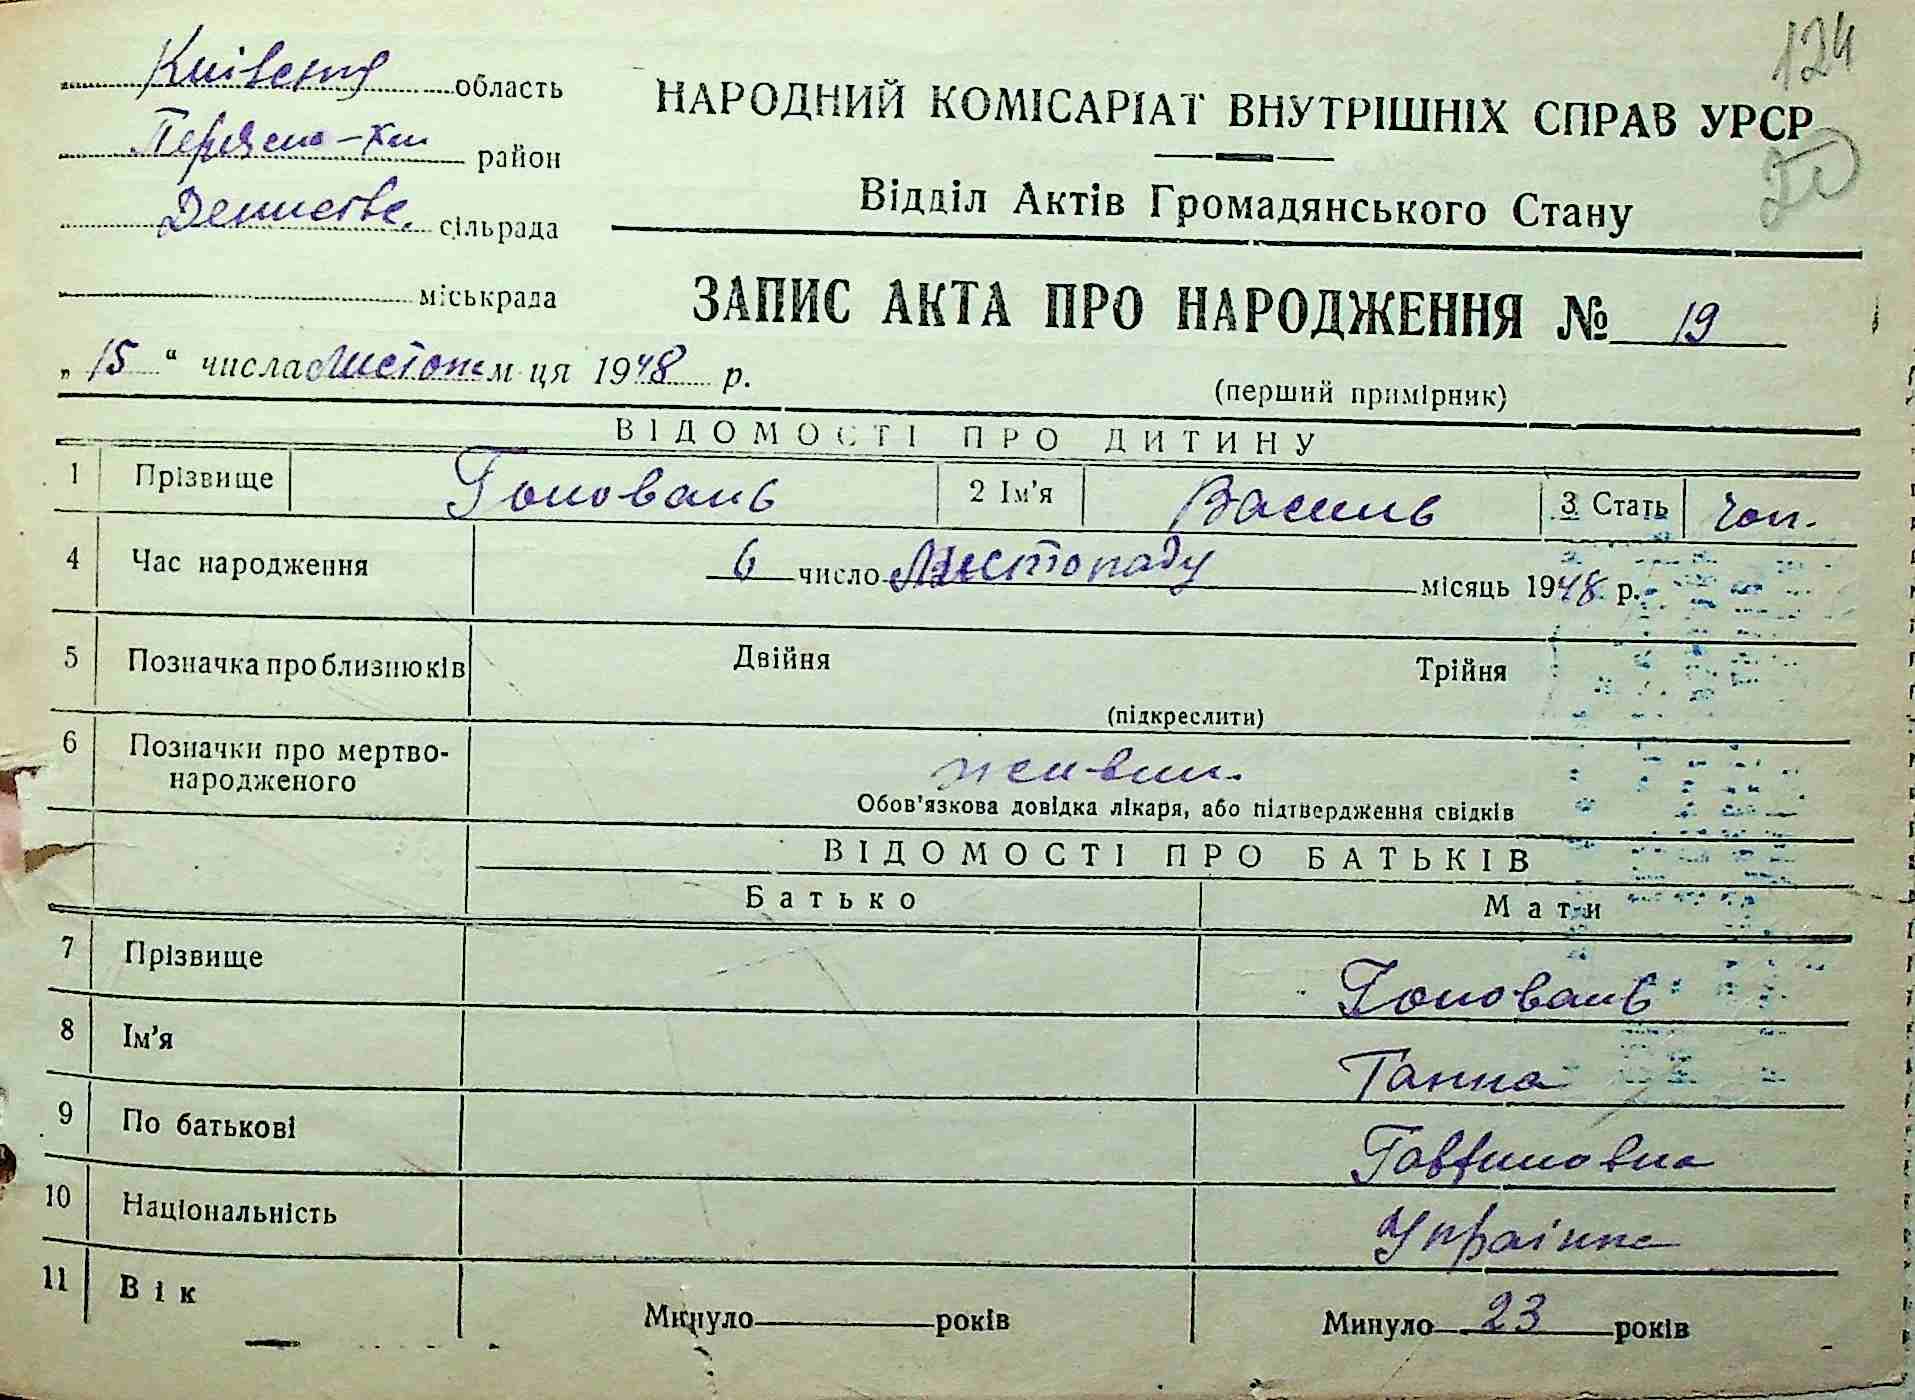 124
Київська область
НАРОДНИЙ КОМІСАРІАТ ВНУТРІШНІХ СПРАВ УРСР
район
20
Відділ Актів Громадянського Стану
сільрада
міськрада
ЗАПИС АКТА ПРО НАРОДЖЕННЯ № 19
„ 15 “ числа Листопа м-ця 1948 р.
(перший примірник)
ВІДОМОСТІ ПРО ДИТИНУ
1 Прізвище Головань 2 Ім'я Василь 3 Стать чол.
4 Час народження 6 число Листопаду місяць 1948 р.
5 Позначка про близнюків Двійня Трійня
(підкреслити)
6 Позначки про мертво-
народженого живий.
Обов'язкова довідка лікаря, або підтвердження свідків
ВІДОМОСТІ ПРО БАТЬКІВ
Батько Мати
7 Прізвище Головань
8 Ім'я Ганна
9 По батькові
10 Національність Українка
11 Вік Минуло років Минуло 23 років